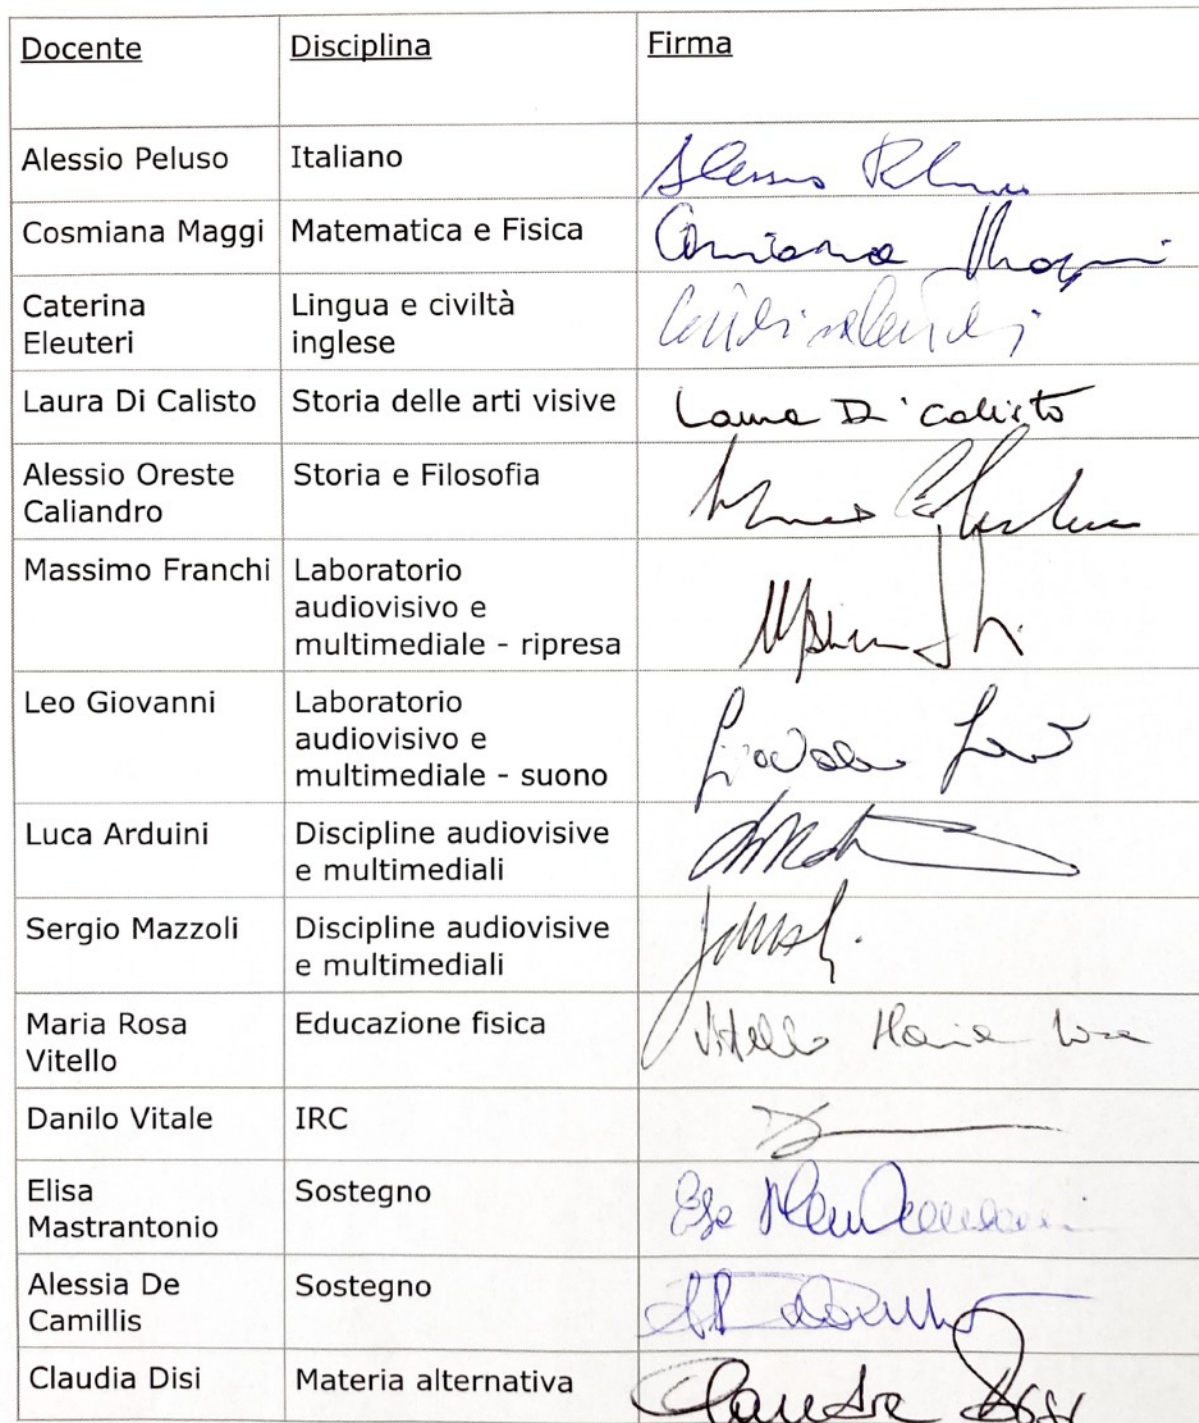 Docente Disciplina Firma
Alessio Peluso Italiano Alessio
Cosmiana Maggi Matematica e Fisica Cosmiana Maggi
Caterina Lingua e civiltà
Eleuteri inglese
Laura Di Calisto Storia delle arti visive Laura Di Calisto
Alessio Oreste Storia e Filosofia
Caliandro
Massimo Franchi Laboratorio
audiovisivo e
multimediale - ripresa
Leo Giovanni Laboratorio
audiovisivo e
multimediale - suono
Luca Arduini Discipline audiovisive
e multimediali
Sergio Mazzoli Discipline audiovisive
e multimediali
Maria Rosa Educazione fisica Vitello Maria Rosa
Vitello
Danilo Vitale IRC
Elisa Sostegno
Mastrantonio
Alessia De Sostegno
Camillis
Claudia Disi Materia alternativa Claudia Disi